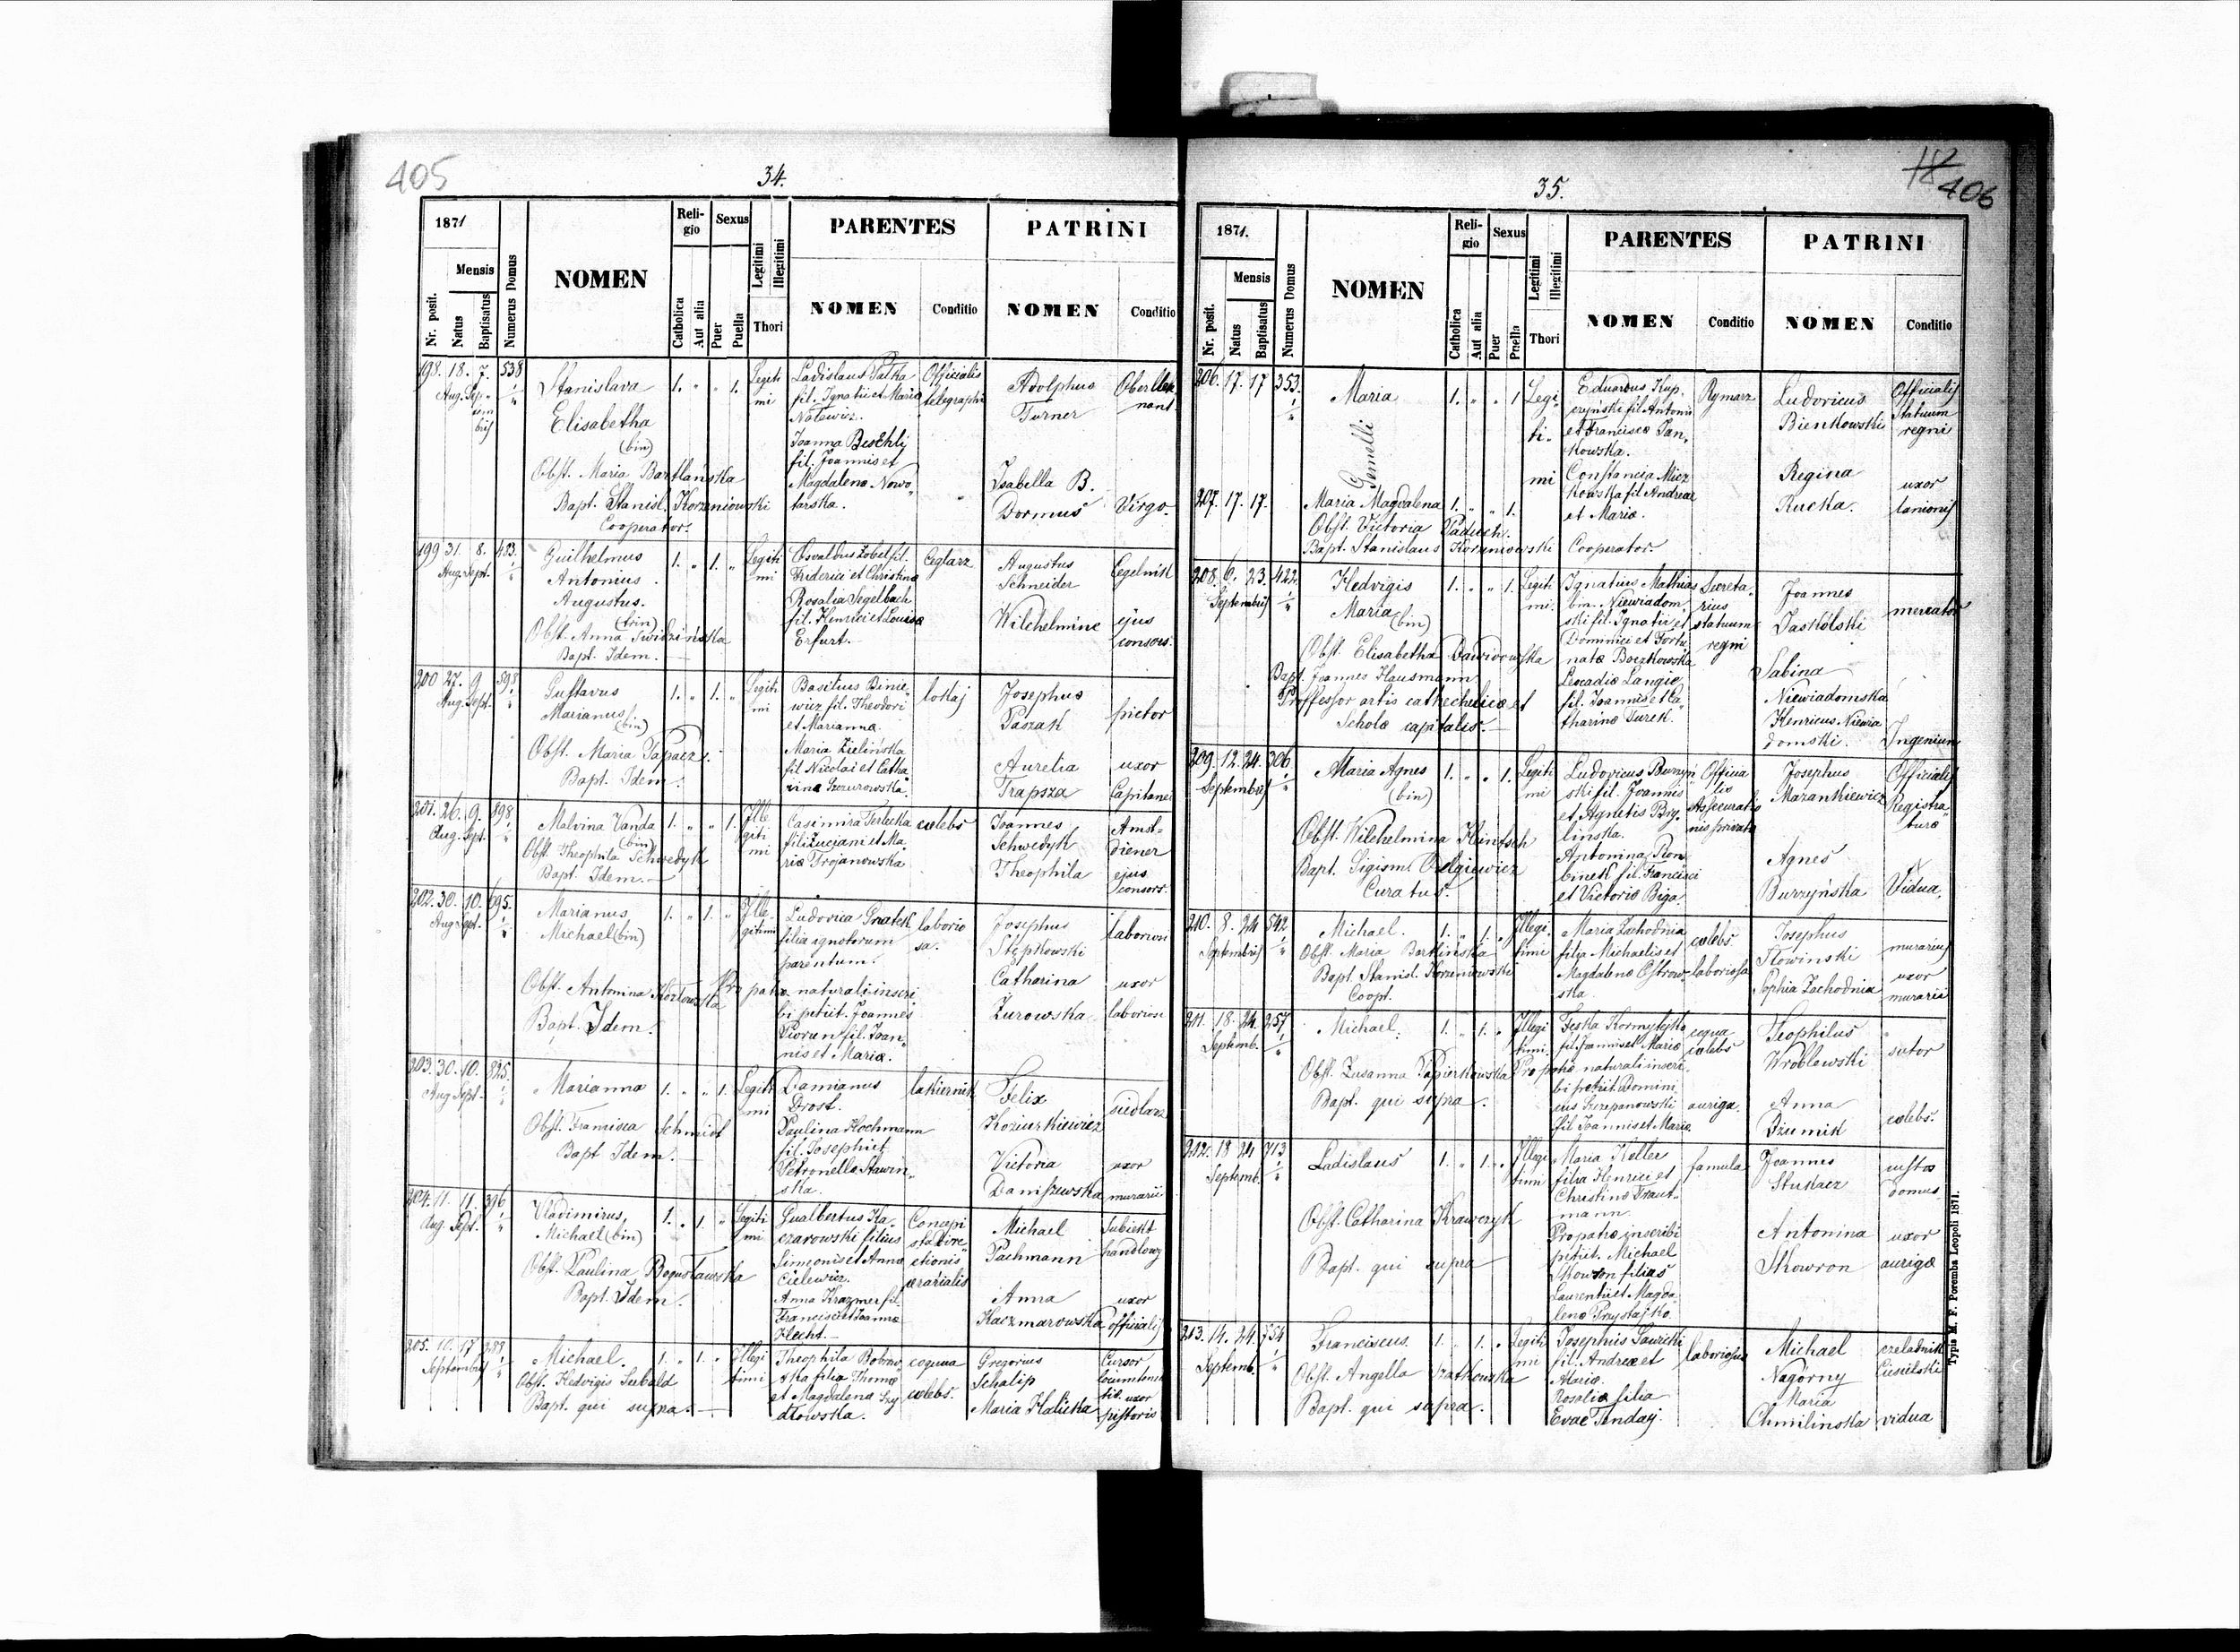 405
34.
1871
Nr. posit.
Mensis
Natus
Baptisatus
Numerus Domus
NOMEN
Religio
Catholica
Aut alia
Sexus
Puer
Puella
Legitimi
Illegitimi
Thori
PARENTES
NOMEN
Conditio
PATRINI
NOMEN
Conditio
198. 18. 7. 538
Aug. Septembris
Stanislava
Elisabetha
(bin)
Obst. Maria Bartlańska
Bapt. Stanisl. Korzeniowski
Cooperator.
1. " " 1.
Legitimi
Ladislaus Patka
fil. Ignatii et Maria
Natewicz.
Joanna Beschly
fil. Joannis et
Magdalena Nowo
tarska.
Officialis
telegraphi
Adolphus
Turner
Isabella B.
Dormus
Oberlieu
nant
Virgo.
199 31. 8. 483.
Aug. Sept.
Guilhelmus
Antonius
Augustus.
(trin)
Obst. Anna Swidzińska
Bapt. Idem.
1. " 1. "
Legitimi
Osvaldus Zobel fil.
Friderici et Christina
Rosalia Segelbach
fil. Henrici et Louisa
Erfurt.
Ceglarz
Augustus
Schneider
Wilhelmine
Cegelnik
ejus
consors.
200 27. 9. 598
Aug. Sept.
Gustavus
Marianus
(bin)
Obst. Maria Tapacz.
Bapt. Idem.
1. " 1. "
Legitimi
Basilius Binie
wicz fil. Theodori
et Marianna.
Maria Zielińska
fil Nicolai et Catha
rina Szczurowska.
lokaj
Josephus
Paszak
Aurelia
Trapsza
pictor
uxor
Capitanei
201. 26. 9. 898
Aug. Sept.
Malvina Vanda
(bin)
Obst. Theophila Schwedyk
Bapt. Idem.
1. " " 1.
Illegitimi
Casimira Terlecka
filia Luciani et Ma
ria Trojanowska
coelebs
Joannes
Schwedyk
Theophila
Amst-
diener
ejus
consors.
202. 30. 10. 695.
Aug. Sept.
Marianus
Michael (bin)
Obst. Antonina Kozłowska
Bapt. Idem.
1. " 1. "
Illegitimi
Ludovica Gnatek
filia ignotorum
parentum.
Pro patre naturali inscri
bi petiit. Joannes
Piorun fil. Joan
nis et Maria.
laborio
sa.
Josephus
Stępkowski
Catharina
Żurowska
laboriosi
uxor
laboriosi
203. 30. 10. 825.
Aug Sept.
Marianna
Obst. Francisca Schmidt
Bapt Idem.
1. " " 1.
Legitimi
Damianus
Drost.
Paulina Hochmann
fil. Josephi et
Petronella Stawin
ska.
lakiernik
Felix
Koziurkiewicz
Victoria
Daniszewska
siodlarz
uxor
murarii
204. 11. 11. 396
Aug. Sept.
Vladimirus
Michael (bin)
Obst. Paulina Bogusławska
Bapt. Idem.
1. " 1. "
Legitimi
Gualbertus Ka
czarowski filius
Simeonis et Anna
Cielewicz.
Anna Krazmer fil.
Francisci et Joanna
Hecht.
Michael
Pachmann
Anna
Kaczmarowska
Subiekt
handlowy
uxor
officialis
205. 10. 17 288
Septembris
Michael.
Obst. Hedvigis Seibald
Bapt. qui supra.
1. " 1. "
Illegitimi
Theophila Bobrow
ska filia Thoma
et Magdalena Szy
dłowska.
coqua
coelebs.
Gregorius
Schalip
Maria Halicka
Cursor
uxor
pistoris
406
35.
1871.
Nr. posit.
Mensis
Natus
Baptisatus
Numerus Domus
NOMEN
Religio
Catholica
Aut alia
Sexus
Puer
Puella
Legitimi
Illegitimi
Thori
PARENTES
NOMEN
Conditio
PATRINI
NOMEN
Conditio
206. 17. 17 353.
Maria
Gemelli
1. " " 1
Legi
ti-
mi
207. 17. 17.
Maria Magdalena 1. " " 1.
Obst. Victoria Paduch.
Bapt. Stanislaus Korzeniowski Cooperator.
Eduardus Kup
czyński fil Antonii
et Francisca Jan
kowska.
Constancia Micz
kowska fil Andreae
et Maria.
Rymarz
Ludovicus
Bienkowski
Regina
Rucka.
Officialis
Statuum
regni
uxor
lanionis
208. 6. 23. 422.
Septembris
Hedvigis
Maria (bin)
Obst. Elisabetha Dawidowska
Bapt. Joannes Hausmann
Proffessor artis cathechiticae et
Schola capitalis.
1. " " 1.
Legitimi.
Ignatius Mathias
bin. Niewiadom
ski fil. Ignatii et
Dominici et Fortu
nata Boczkowska
Leocadia Langie
fil. Joannis et Ca
tharina Turek.
Secreta
rius
statuum
regni
Joannes
Jaskólski
Sabina
Niewiadomska
Henricus Niewia
domski.
mercator
Ingenium
209. 12. 24. 306
Septembris
Maria Agnes
(bin)
Obst. Wilhelmina Hentsch
Bapt. Sigism. Odelgiewicz
Curatus.
1. " " 1.
Legitimi
Ludovicus Burzyń
ski fil. Joannis
et Agnetis Bry
linska.
Antonina Rom
binek fil. Francisci
et Victoria Biga.
Officia
lis
Assecuratio
nis privata
Josephus
Mazankiewicz
Agnes
Burzyńska
Officialis
Registra
tura
Vidua.
210. 8. 24 542
Septembris
Michael.
Obst. Maria Bartlińska
Bapt. Stanisl. Korzeniowski
Coopt.
1. " 1. "
Illegitimi
Maria Zachodnia
filia Michaelis et
Magdalena Ostrow
ska.
coelebs
laboriosa
Josephus
Słowinski
Sophia Zachodnia
murarius
uxor
murarii
211. 18. 24. 257.
Septemb.
Michael.
Obst. Zusanna Papierkowska
Bapt. qui supra.
1. " 1. "
Illegitimi
Feska Kormytyjko
fil. Joannis et Maria
Pro patre naturali inscri
bi petiit Domini
cus Szczepanowski
fil Joannis et Maria
coqua
coelebs
auriga.
Theophilus
Wroblewski
Anna
Dzumik
sutor
coelebs.
212. 18 24 713
Septemb.
Ladislaus
Obst. Catharina Krawczyk
Bapt. qui supra
1. " 1. "
Illegitimi
Maria Keller
filia Henrici et
Christina Traut
mann.
Pro patre inscribi
petiit. Michael
Skowron filius
Laurentii et Magda
lena Przystajko.
famula
Joannes
Stukacz
Antonina
Skowron
custos
domus.
uxor
auriga
213. 14. 24. 754
Septemb.
Franciscus.
Obst. Angella Szatkowska
Bapt. qui supra.
1. " 1. "
Legitimi
Josephus Sawicki
fil. Andreae et
Maria.
Rosalia filia
Evae Tenday.
laboriosus
Michael
Nagórny
Maria
Chmilinska
czeladnik
Ciesielski
vidua
Typis M. F. Poremba Leopoli 1871.